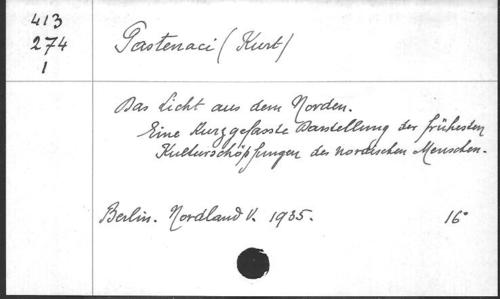 413
274
1
Pastenaci (Kurt)
Das Licht aus dem Norden.
Eine Kurzgefasste Darstellung der frühesten
Kulturschöpfungen des nordischen Menschen.
Berlin. Nordland V. 1935. 16°